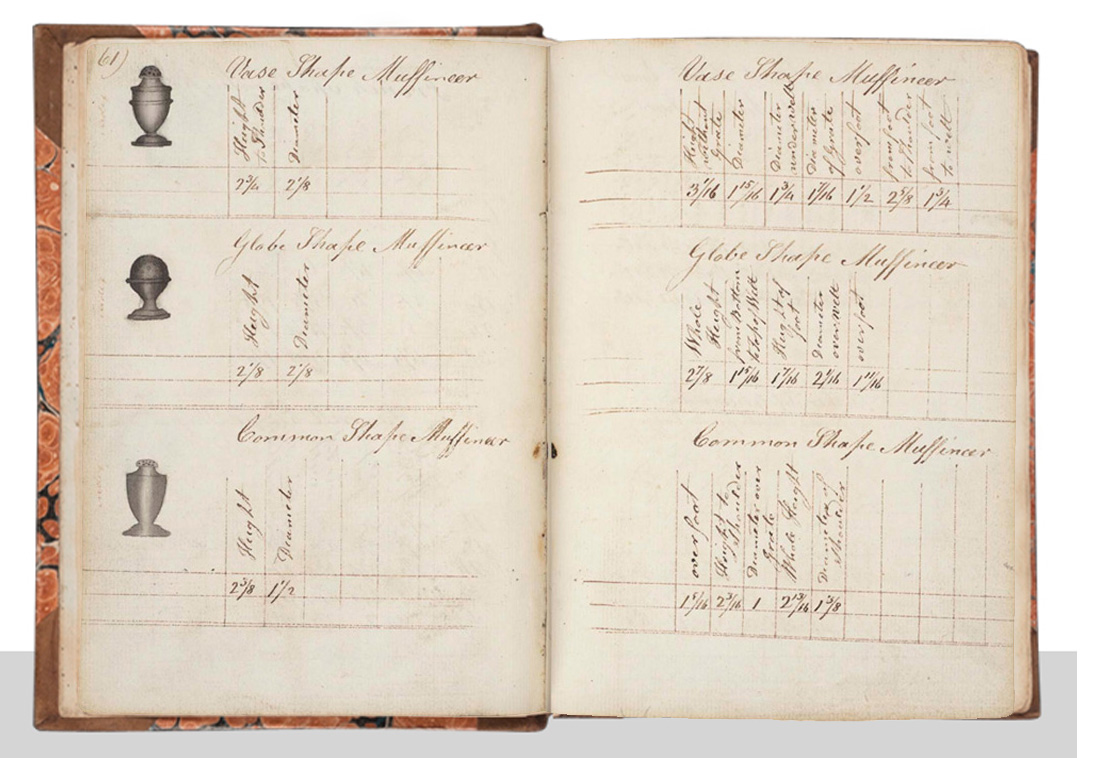 61)
Vase Shape Muffineer
Height to Shoulder
Diameter
2 3/4
2 1/8
Globe Shape Muffineer
Height
Diameter
2 1/8
2 1/8
Common Shape Muffineer
Height
Diameter
2 3/8
1 1/2
Vase Shape Muffineer
Height without Grate
Diameter
Diameter under welt
Diameter of Grate
over foot
from foot to Shoulder
from foot to welt
3 1/16
1 15/16
1 3/4
1 1/16
1 1/2
2 5/8
1 3/4
Globe Shape Muffineer
Whole Height
from Bottom to top of Welt
Height of foot
Diameter over welt
over foot
2 7/8
1 15/16
1 7/16
2 1/16
1 11/16
Common Shape Muffineer
over foot
Height to Shoulder
Diameter over Grate
Whole Height
Diameter of Shoulder
1 5/16
2 3/16
1
2 13/16
1 3/8